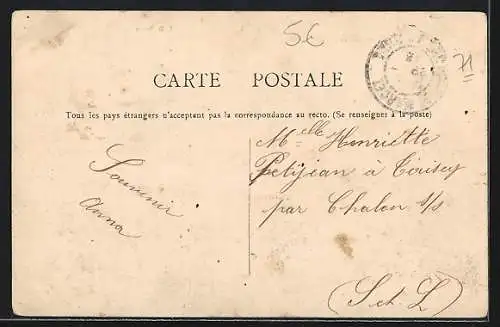 5€
71
CARTE POSTALE
Tous les pays étrangers n'acceptent pas la correspondance au recto. (Se renseigner à la poste)
Souvenir
Anna
Melle Henriette
Petijean à Tousey
par Chalon s/s
(S et L)